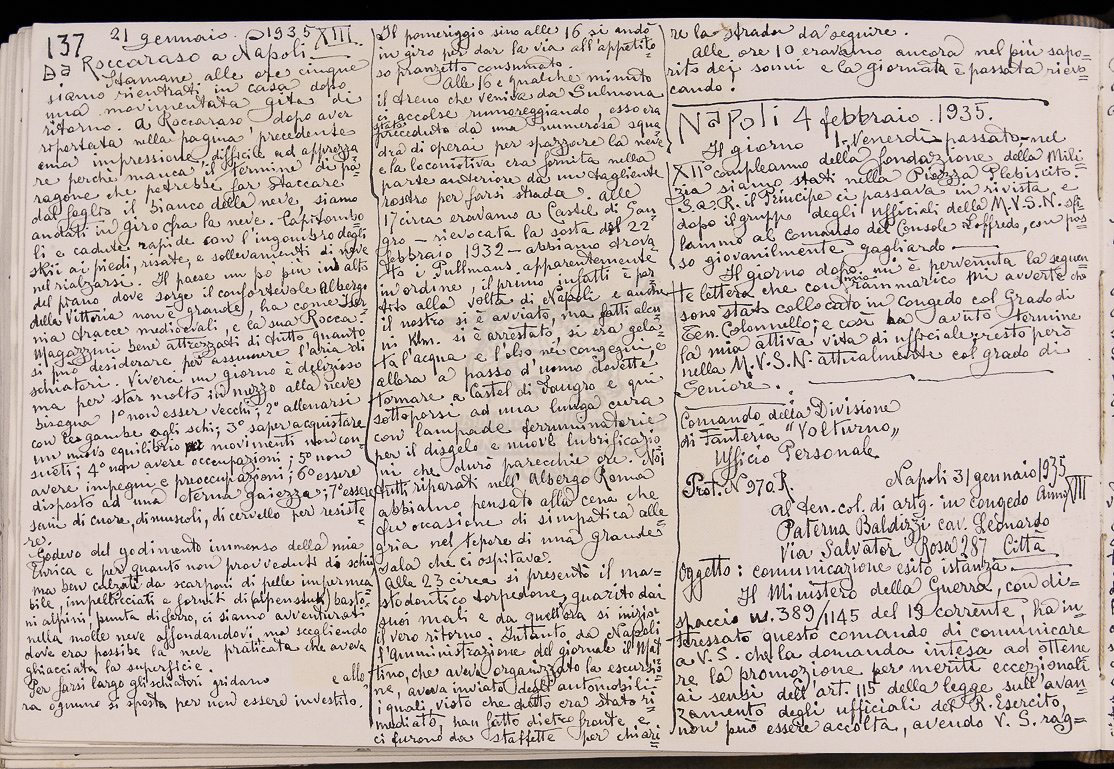 137
21 gennaio. 1935 XIII.
Da Roccaraso a Napoli
Stamane, alle ore cinque
siamo rientrati in casa dopo
una movimentata gita di
ritorno. A Roccaraso dopo aver
riportata nella pagina precedente
una impressione difficile ad apprezza
re perché manca il termine di pa=
ragone che potrebbe far staccare
dal foglio il bianco della neve, siamo
andati in giro fra la neve. Capitombo
li e cadute rapide con l'ingombro degli
skii ai piedi, risate, e sollevamenti di neve
nel rialzarsi. Il paese un po' più in alto
del piano dove sorge il confortevole albergo
della Vittoria non è grande, ha come
mia tracce medioevali, e la sua Rocca.
Magazzini bene attrezzati di tutto quanto
si può desiderare per assumere l'aria di
schiatori. Viverci un giorno è delizioso
ma per star molto in mezzo alla neve
bisogna 1° non esser vecchi; 2° allenarsi
con le gambe agli schi; 3° saper acquistare
un nuovo equilibrio nei movimenti non con
sueti; 4° non avere occupazioni; 5° non
avere impegni e preoccupazioni; 6° essere
disposto ad una eterna gaiezza; 7° essere
sani di cuore, di muscoli, di cervello per resiste=
re.
Godevo del godimento immenso della mia
Enrica e per quanto non provveduti di schii
ma ben calzati da scarponi di pelle imperma
bile, impellicciati e forniti di (alpenstuk) basto=
ni alpini, punta di ferro, ci siamo avventurati
nella molle neve affondandovi ma scegliendo
dove era possibile la neve praticata che aveva
ghiacciata la superficie.
Per farsi largo gli schiatori gridano e allo
ra ognuno si sposta per non essere investito.
Il pomeriggio sino alle 16 si andò
in giro per dar la via all'appetito
so pranzetto consumato.
Alle 16 e qualche minuto
il treno che veniva da Sulmona
ci accolse rumoreggiando, esso era
stato preceduto da una numerosa squa
dra di operai per spazzare la neve
e la locomotiva era fornita nella
parte anteriore da un tagliente
rostro per farsi strada. Alle
17 circa eravamo a Castel di San
gro – rievocata la sosta del 22
febbraio 1932 – abbiamo trova
to i Pullmans, apparentemente
in ordine, il primo infatti è par
tito alla volta di Napoli e anche
il nostro si è avviato, ma fatti alcu
ni Klm. si è arrestato, si era gela=
ta l'acqua e l'olio nei congegni, e
allora a passo d'uomo dovette
tornare a Castel di Sangro e qui
sottoporsi ad una lunga cura
con lampade ferruminatorie
per il disgelo e nuove lubrificazio
ni che durò parecchie ore. Noi
tutti riparati nell'Albergo Roma
abbiamo pensato alla cena che
fu occasione di simpatica alle
gria nel tepore di una grande
sala che ci ospitava.
Alle 23 circa si presentò il ma=
stodontico torpedone, guarito dai
suoi mali e da quell'ora si iniziò
il vero ritorno. Intanto da Napoli
l'Amministrazione del giornale il Mat
tino, che aveva organizzato la escursio
ne, aveva inviato delle automobili
i quali, visto che tutto era stato ri
mediato, han fatto dietro fronte e
ci furono da staffette per chiari
re la strada da seguire.
Alle ore 10 eravamo ancora nel più sapo=
rito dei sonni e la giornata è passata rievo=
cando.
Napoli 4 febbraio. 1935.
Il giorno 1, Venerdì passato, nel
XII° compleanno della fondazione della Mili=
zia siamo stati nella Piazza Plebiscito.
S.A.R. il Principe ci passava in rivista, e
dopo il gruppo degli ufficiali della M.V.S.N. sfi=
lammo al comando del Console Loffredo, con pas
so giovanilmente gagliardo
Il giorno dopo mi è pervenuta la seguen
te lettera che con mio rammarico mi avverte che
sono stato collocato in congedo col Grado di
Ten. Colonnello; e così ha avuto termine
la mia attiva vita di ufficiale: resto però
nella M.V.S.N. attualmente col grado di
Seniore.
Comando della Divisione
di Fanteria "Volturno"
Ufficio Personale
Prot. N 970 R.
Napoli 31 gennaio 1935
Anno XIII
Al Ten. col. di artig. in congedo
Paterna Baldizzi cav. Leonardo
Via Salvator Rosa 287 Città
Oggetto: comunicazione esito istanza.
Il Ministero della Guerra, con di=
spaccio n. 389/1145 del 19 corrente, ha in
teressato questo comando di comunicare
a V.S. che la domanda intesa ad ottene
re la promozione per meriti eccezionali
ai sensi dell'art. 115 della legge sull'avan
zamento degli ufficiali del R. Esercito,
non può essere accolta, avendo V.S. rag=